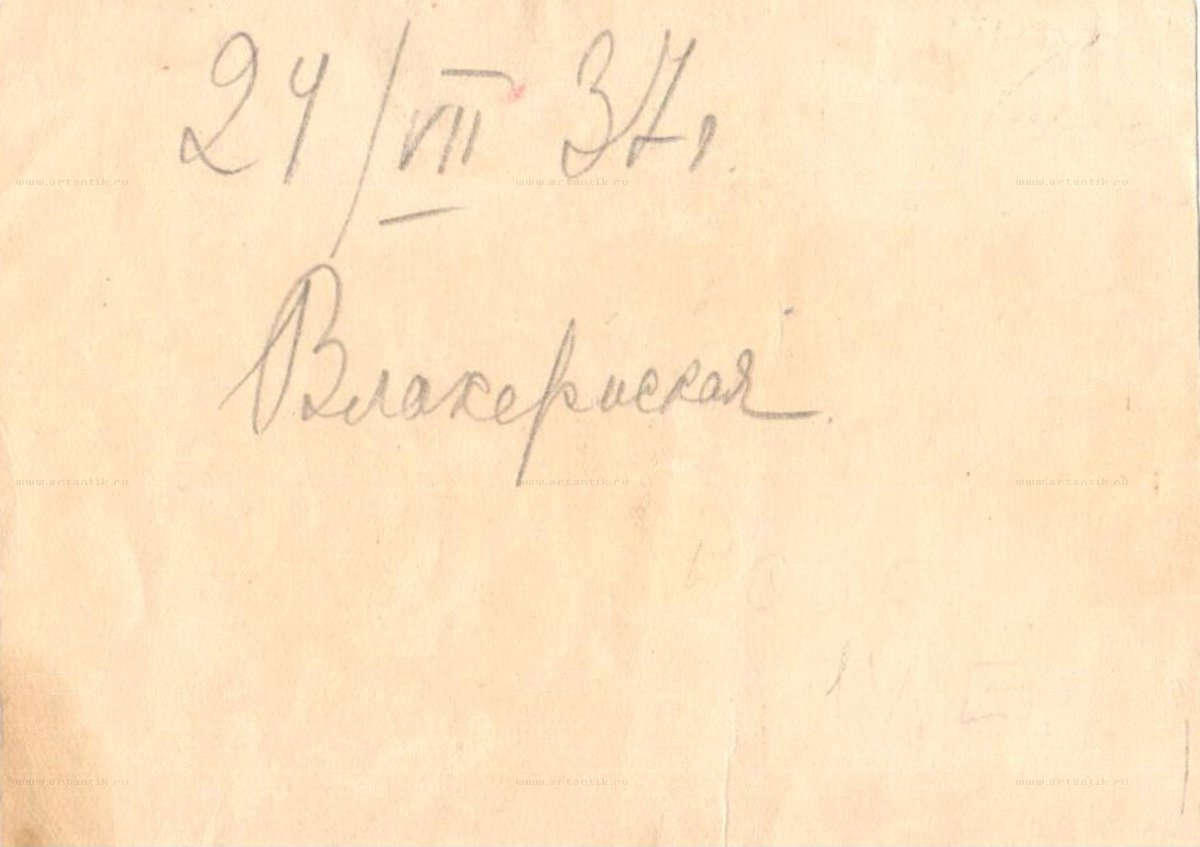 24/VII 37г.
Влахернская.
www.artantik.ru www.artantik.ru www.artantik.ru
www.artantik.ru www.artantik.ru www.artantik.ru
www.artantik.ru www.artantik.ru www.artantik.ru